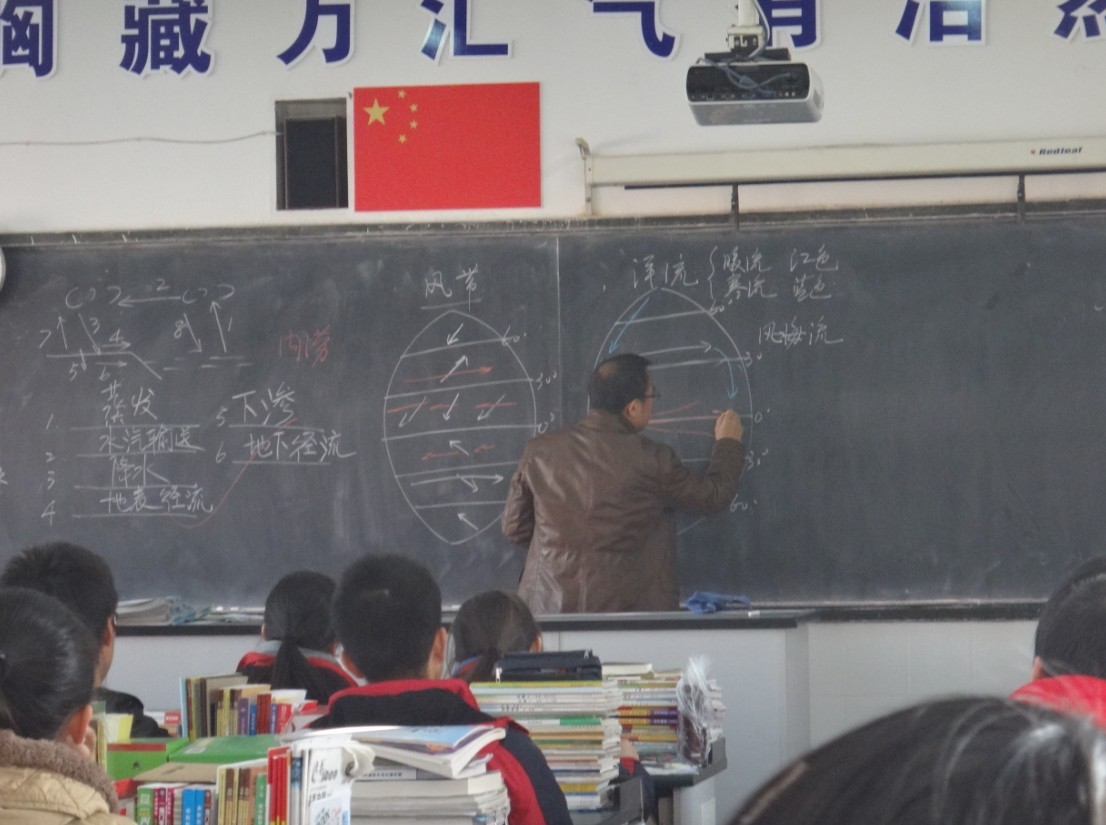 胸藏万汇 气有浩然
Redleaf
2
7 3 4 8 1
5 6
内涝
1 蒸发
2 水汽输送
3 降水
4 地表径流
5 下渗
6 地下径流
风带
60°
30°
0°
洋流 { 暖流 红色
寒流 蓝色
60°
风海流
30°
0°
30°
60°